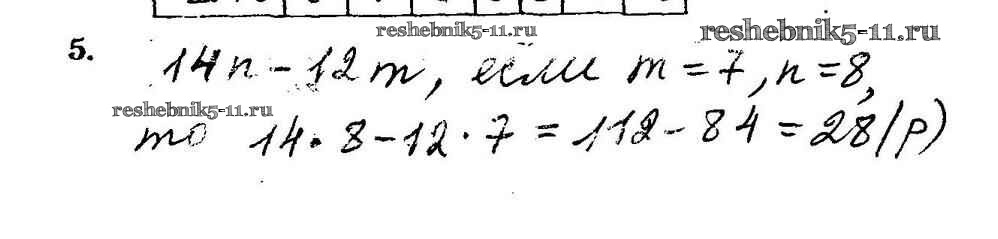 reshebnik5-11.ru
reshebnik5-11.ru
5. 14n - 12m, если m = 7, n = 8,
reshebnik5-11.ru
то 14 · 8 - 12 · 7 = 112 - 84 = 28 (р)